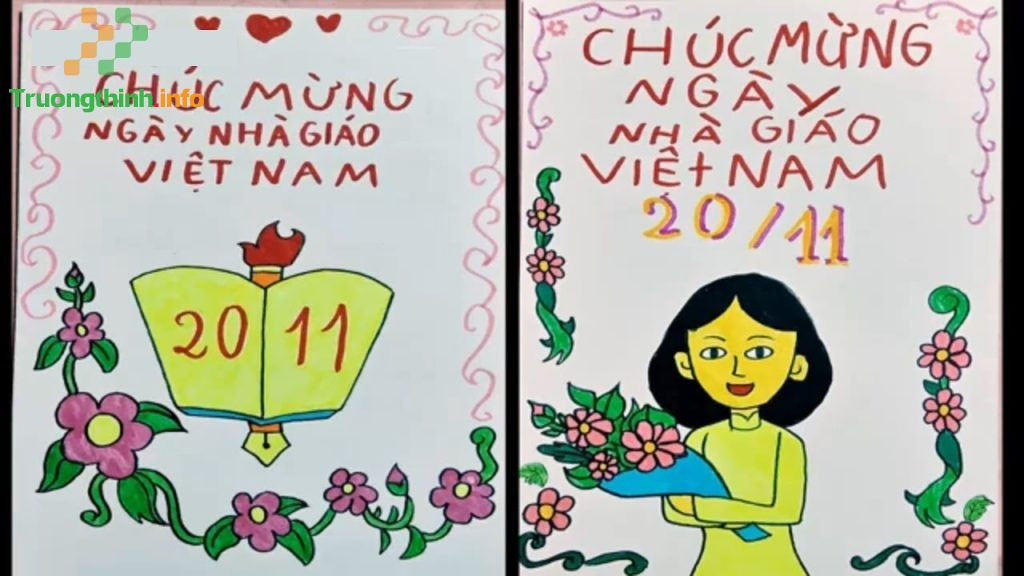 Truongthinh.info
CHÚC MỪNG
NGÀY NHÀ GIÁO
VIỆT NAM
20 11
CHÚC MỪNG
NGÀY
NHÀ GIÁO
VIỆT NAM
20/11